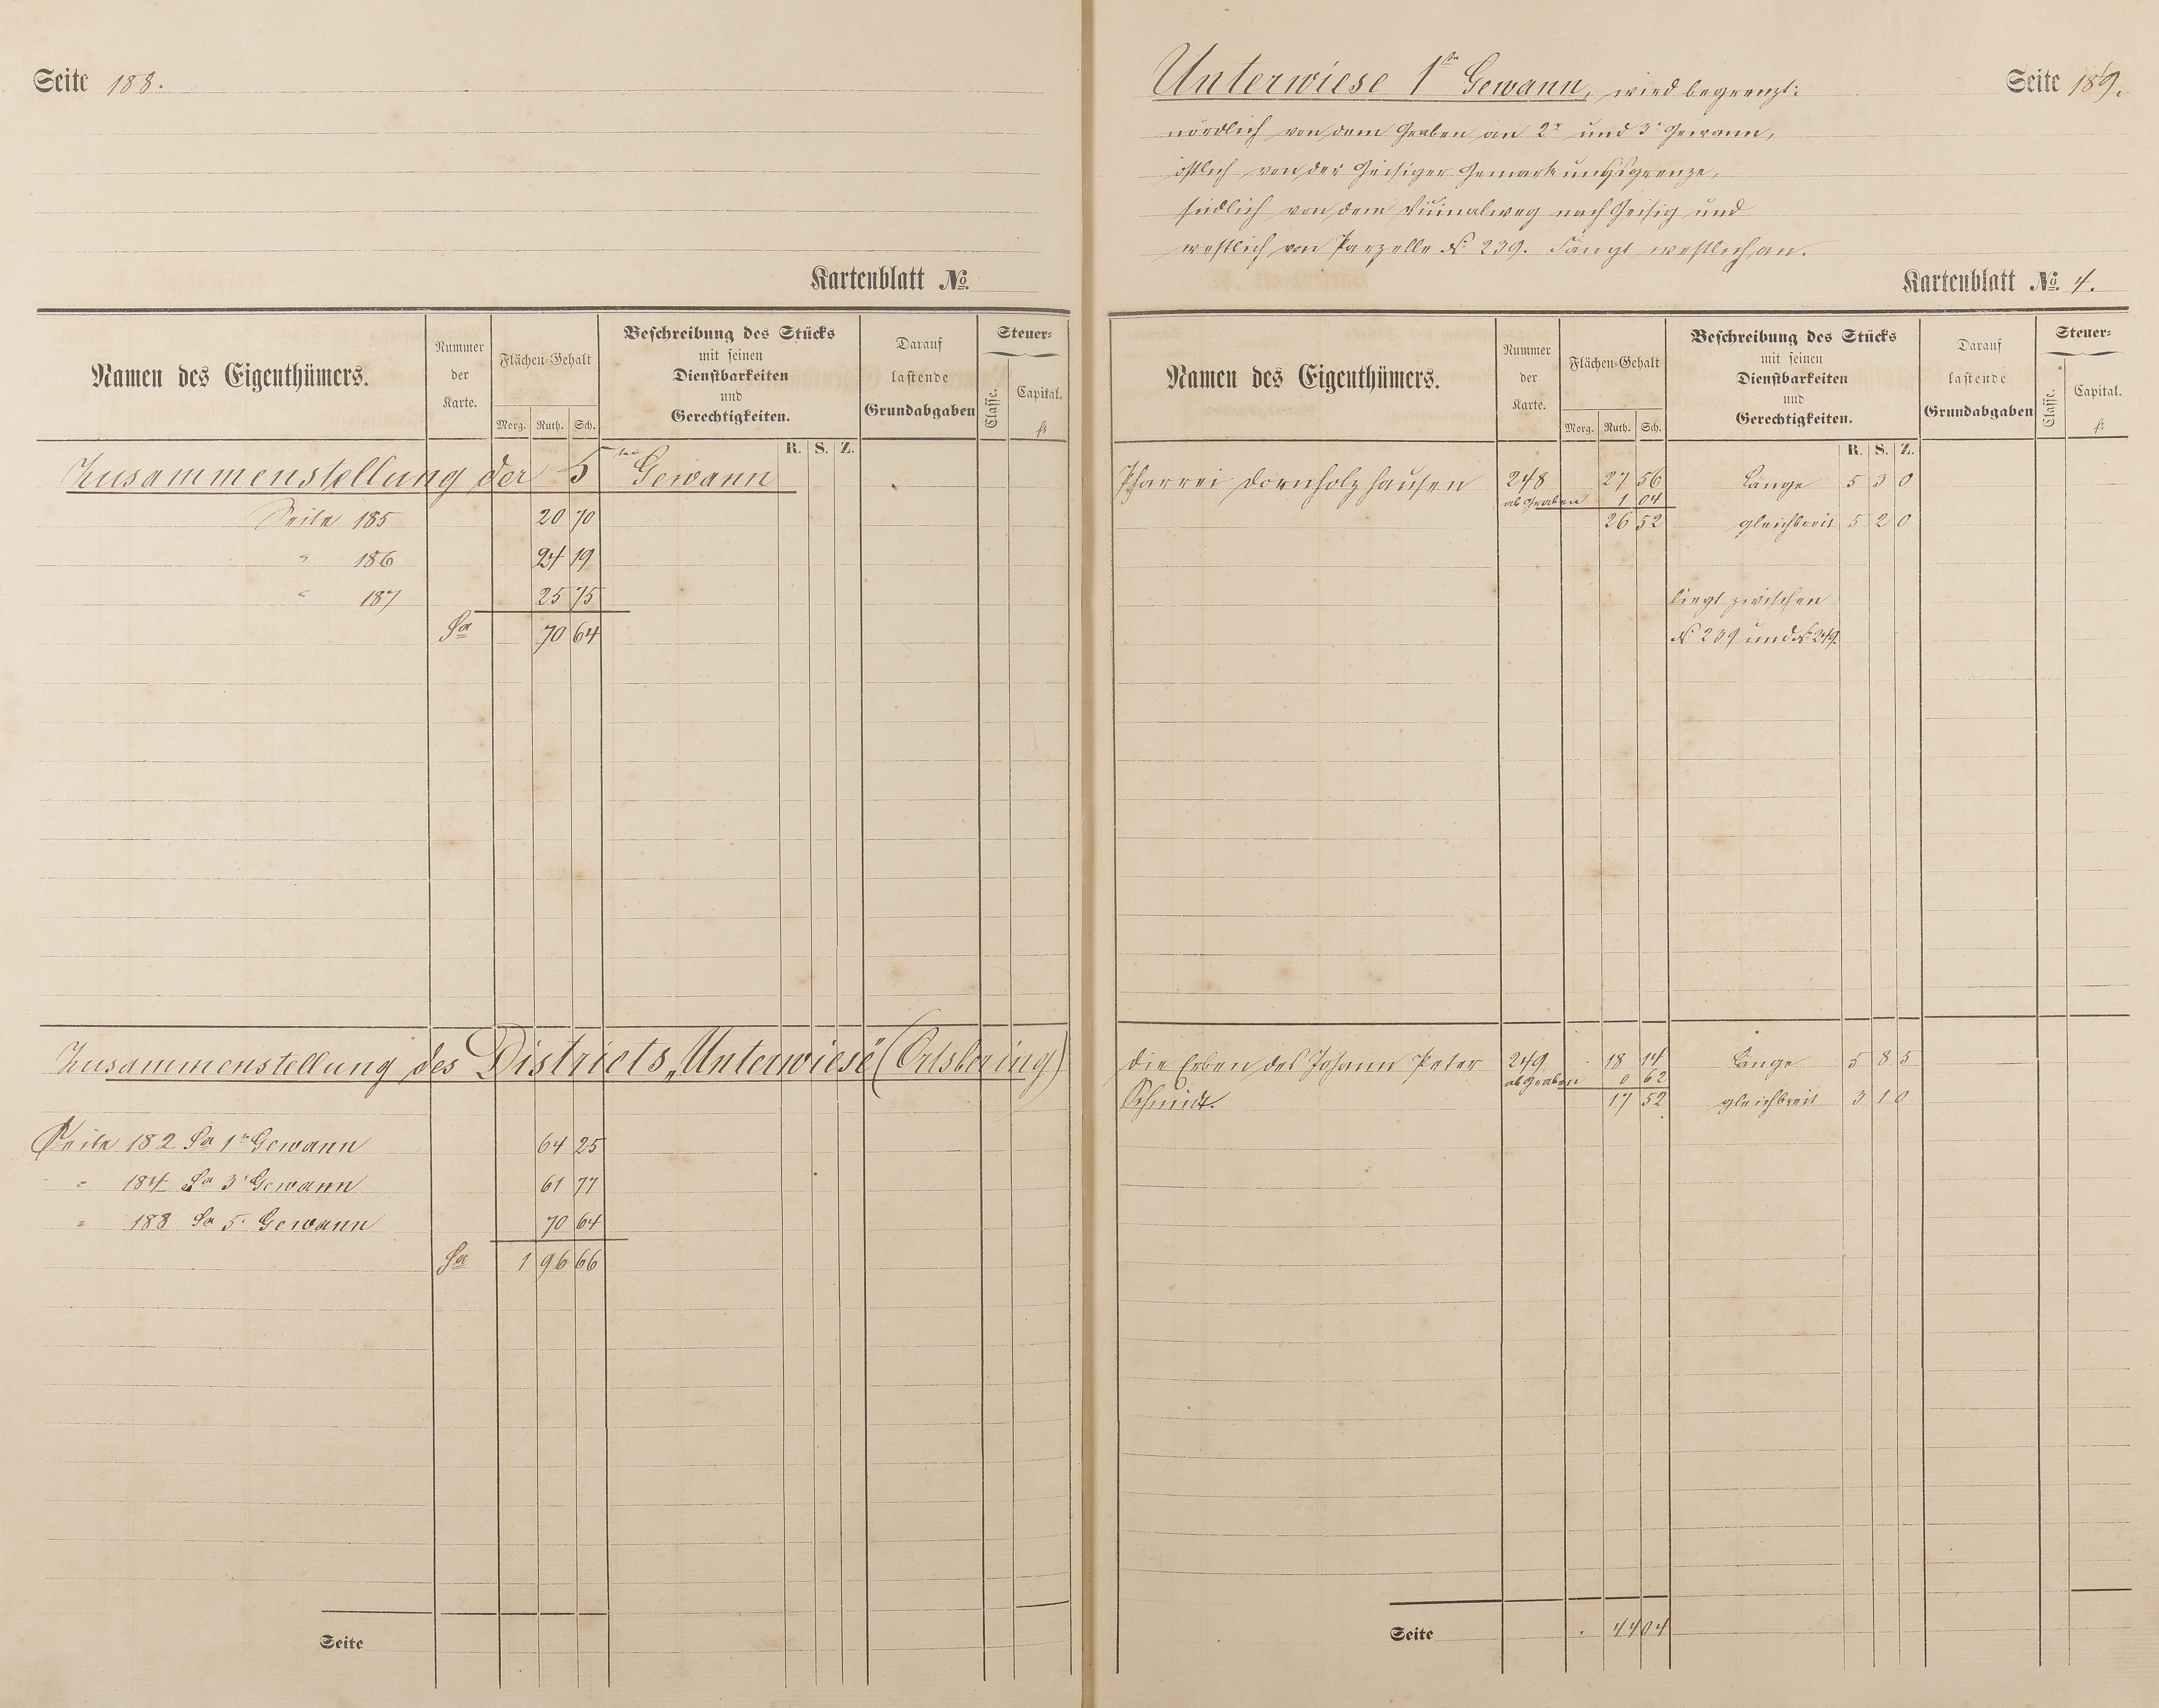 Seite 188.
Kartenblatt No.
Namen des Eigenthümers.
Nummer der Karte.
Flächen-Gehalt
Morg. Ruth. Sch.
Beschreibung des Stücks
mit seinen
Dienstbarkeiten
und
Gerechtigkeiten.
Darauf
lastende
Grundabgaben
Steuer-
Classe. Capital.
fl
R. S. Z.
Zusammenstellung der 5ten Gewann
Seite 185 20 70
" 186 24 19
" 187 25 75
Sa 70 64
Zusammenstellung des Districts „Unterwiese" (Ortsbering)
Seite 182 Sa 1r Gewann 64 25
" 184 Sa 3r Gewann 61 77
" 188 Sa 5r Gewann 70 64
Sa 1 96 66
Seite
Unterwiese 1te Gewann, wird begrenzt:
Seite 189.
nördlich von dem Graben an 2r und 3r Gewann,
östlich von der Geisiger Gemarkungsgrenze,
südlich von dem Vicinalweg nach Geisig und
westlich von Parzelle No 239. Fängt westlich an.
Kartenblatt No. 4.
Namen des Eigenthümers.
Nummer der Karte.
Flächen-Gehalt
Morg. Ruth. Sch.
Beschreibung des Stücks
mit seinen
Dienstbarkeiten
und
Gerechtigkeiten.
Darauf
lastende
Grundabgaben
Steuer-
Classe. Capital.
fl
R. S. Z.
Pfarrei Dornholzhausen 248 27 56 Länge 5 3 0
ab Graben 1 04
26 52 gleichbreit 5 2 0
liegt zwischen
No 239 und No 249.
Die Erben des Johann Peter 249 18 14 Länge 5 8 5
ab Graben 0 62
Schmidt. 17 52 gleichbreit 3 1 0
Seite 44 04